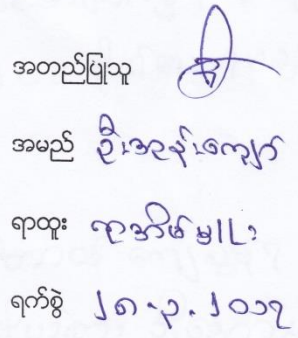 အတည်ပြုသူ
အမည် ဦးအုန်းကျော်
ရာထူး ရာအိမ်မှူး
ရက်စွဲ ၂၈-၃-၂၀၁၇